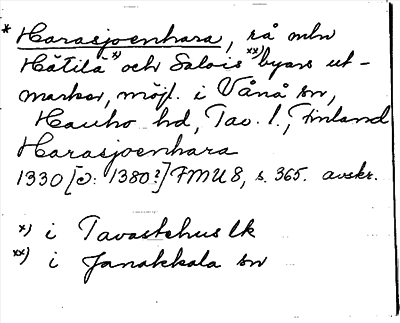 * Harasjoenhara, rå mln
Hätilä *) och Salois **) byars ut-
marker, möjl. i Vånå sn,
Hauho hd, Tav. l., Finland
Harasjoenhara
1330 [ɔ: 1380?] FMU 8, s. 365. avskr.
*) i Tavastehus lk
**) i Janakkala sn